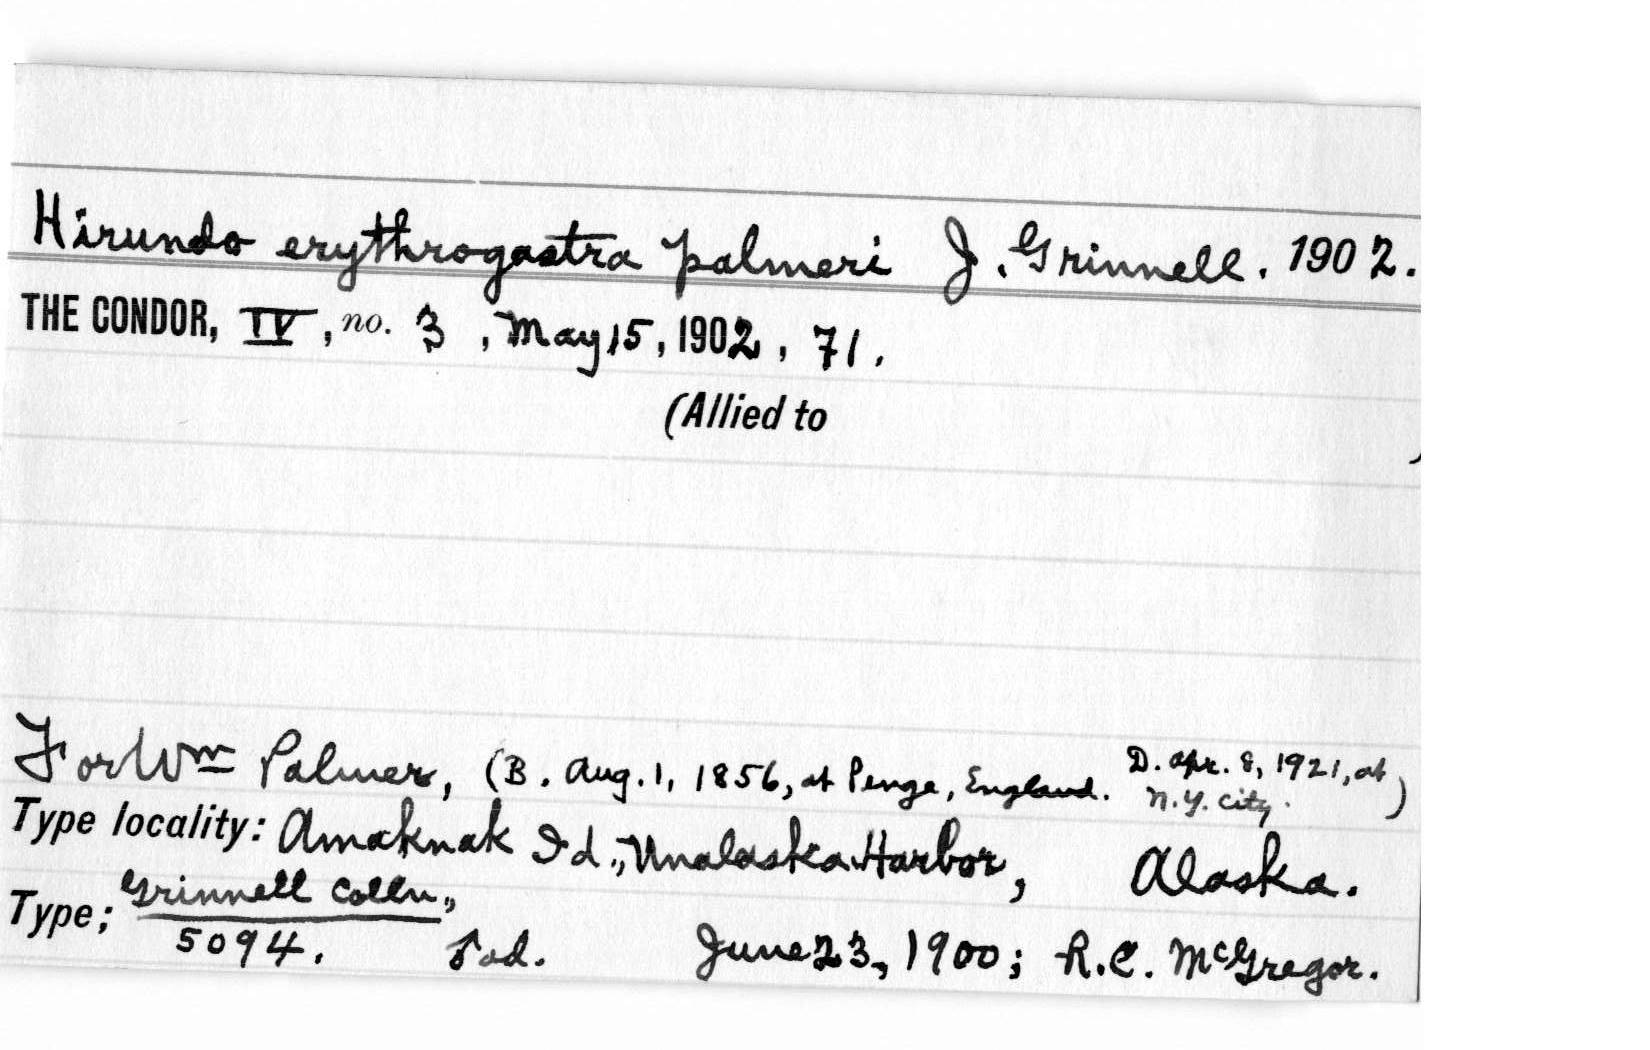 Hirundo erythrogastra palmeri J. Grinnell. 1902.
THE CONDOR, IV, no. 3, May 15, 1902, 71.
(Allied to )
For Wm Palmer, (B. Aug. 1, 1856, at Penge, England. D. Apr. 8, 1921, at N.Y. City.)
Type locality: Amaknak Id., Unalaska Harbor, Alaska.
Type; Grinnell Colln.,
5094. ad. June 23, 1900; R.C. McGregor.